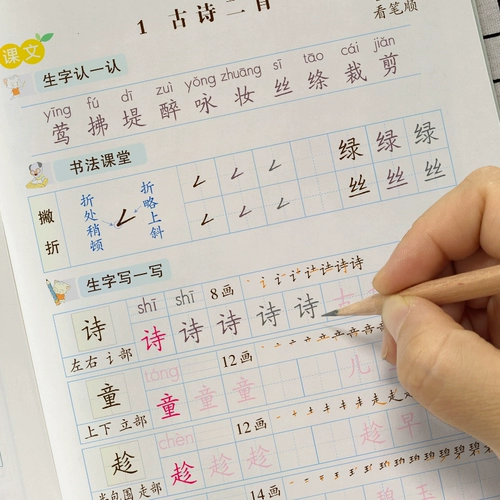 1 古诗二首
看笔顺
课文
生字认一认
yīng fú dī zuì yǒng zhuāng sī tāo cái jiǎn
莺 拂 堤 醉 咏 妆 丝 绦 裁 剪
书法课堂
撇折
折处稍顿
折略上斜
绿 绿 绿
丝 丝 丝
生字写一写
shī shī 8画
诗 诗 诗 诗 诗 诗
左右 讠部
tóng 12画
童 童 童 童 儿
上下 立部
chèn 12画
趁 趁 趁 趁 趁 早
半包围 走部
14画